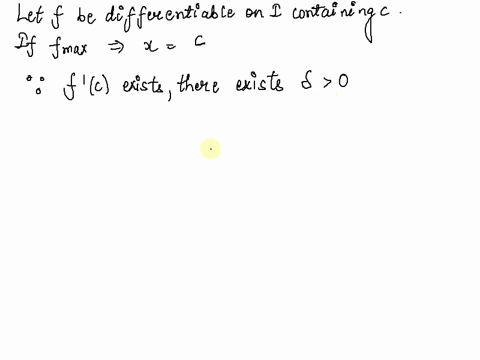 Let f be differentiable on I containing c.
If fmax ⇒ x = c
∵ f'(c) exists, there exists δ > 0